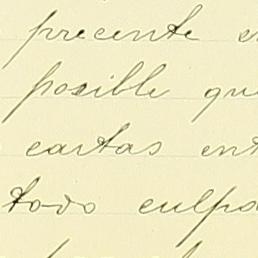 precente
posible que
cartas ent
todo culpa